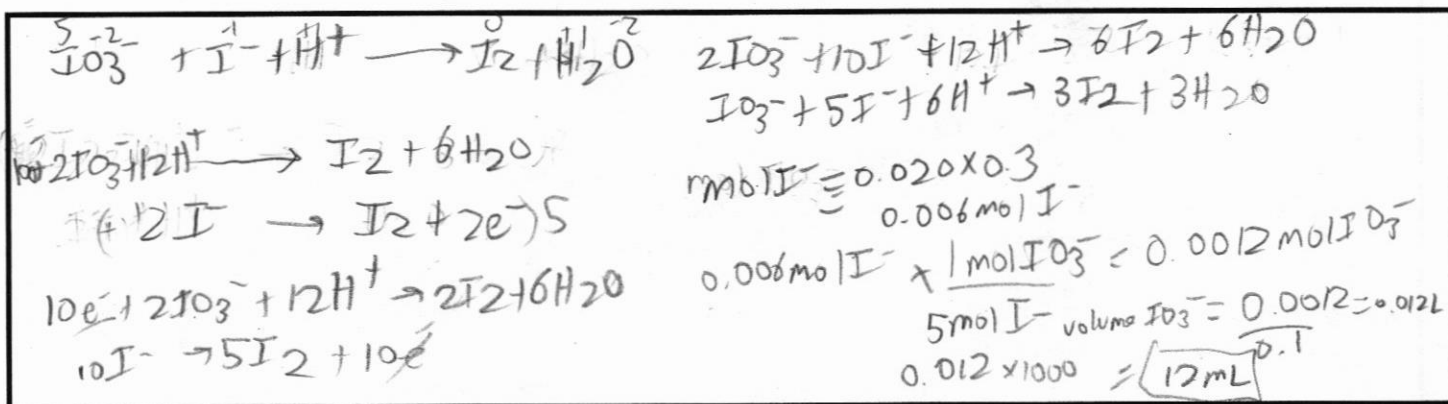 5 -2 -1 +1 0 +1 -2
IO3^- + I^- + H^+ → I2 + H2O
2IO3^- + 12H^+ → I2 + 6H2O
(+ 2I^- → I2 + 2e^-)5
10e^- + 2IO3^- + 12H^+ → 2I2 + 6H2O
10I^- → 5I2 + 10e^-
2IO3^- + 10I^- + 12H^+ → 6I2 + 6H2O
IO3^- + 5I^- + 6H^+ → 3I2 + 3H2O
mol I^- = 0.020 × 0.3
= 0.006 mol I^-
0.006 mol I^- × 1 mol IO3^- / 5 mol I^- = 0.0012 mol IO3^-
volume IO3^- = 0.0012 / 0.1 = 0.012L
0.012 × 1000 = 12mL